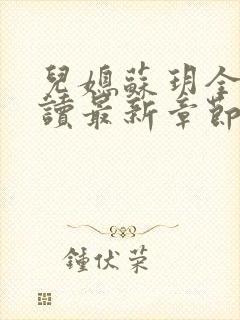 兒媳蘇玥全
讀最新章節
鍾伏荣